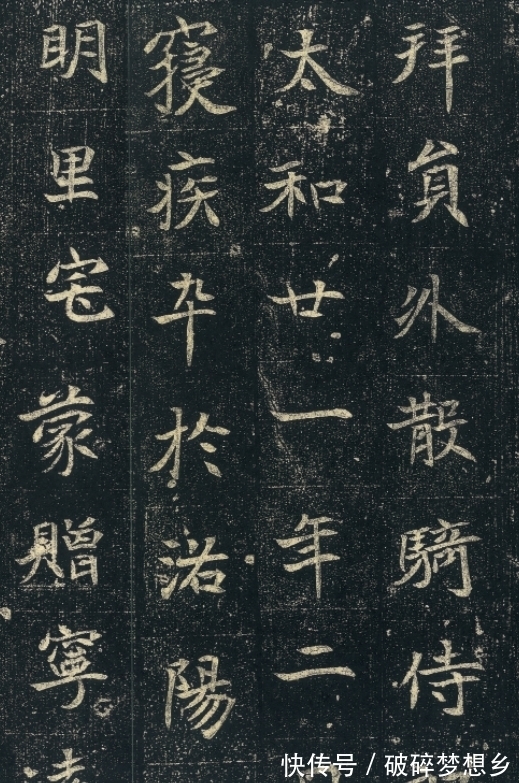 拜貟外散騎侍
太和廿一年二
寑疾卒於洛陽
明里宅蒙贈寧
快传号/破碎梦想乡